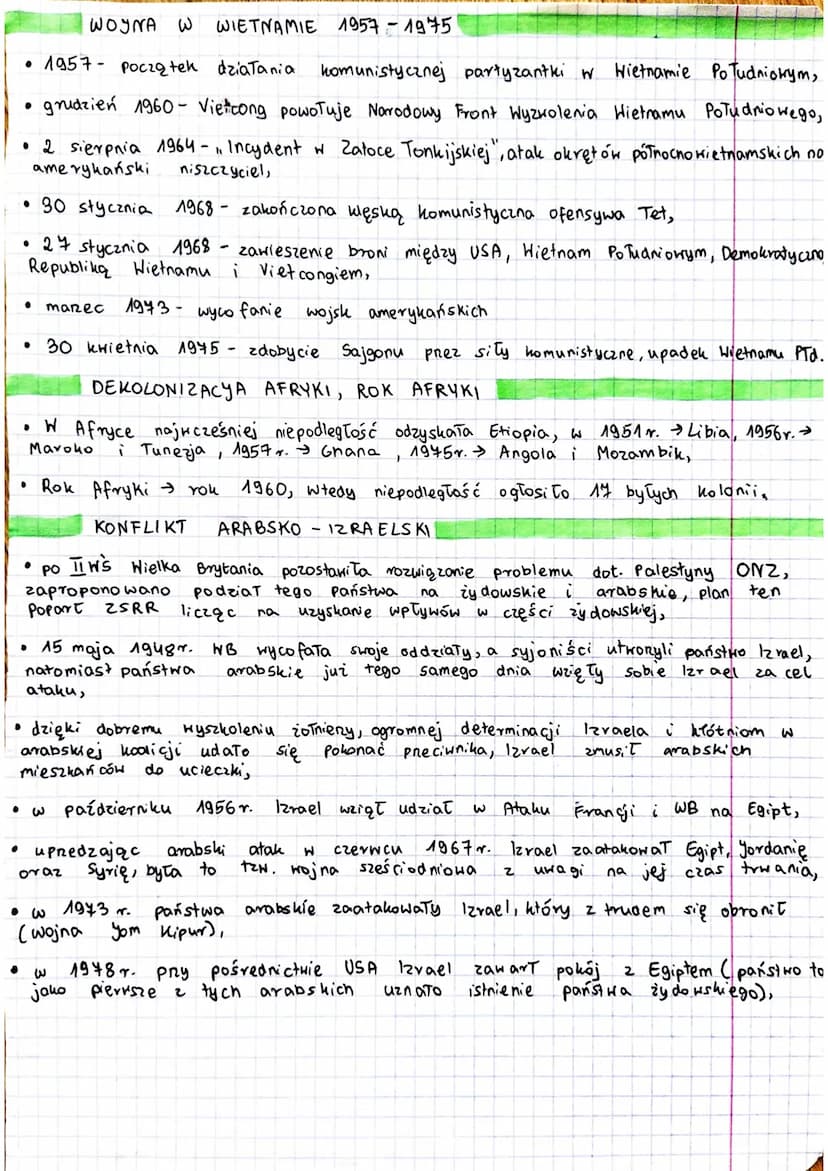 WOJNA W WIETNAMIE 1957-1975
• 1957 - początek działania komunistycznej partyzantki w Wietnamie Południowym,
• grudzień 1960 - Vietcong powołuje Narodowy Front Wyzwolenia Wietnamu Południowego,
• 2 sierpnia 1964 - „Incydent w Zatoce Tonkijskiej", atak okrętów północnowietnamskich na
amerykański niszczyciel,
• 30 stycznia 1968 - zakończona klęską komunistyczna ofensywa Tet,
• 27 stycznia 1968 - zawieszenie broni między USA, Wietnam Południowym, Demokratyczną
Republiką Wietnamu i Vietcongiem,
• marzec 1973 - wycofanie wojsk amerykańskich
• 30 kwietnia 1975 - zdobycie Sajgonu przez siły komunistyczne, upadek Wietnamu Płd.
DEKOLONIZACJA AFRYKI, ROK AFRYKI
• W Afryce najwcześniej niepodległość odzyskała Etiopia, w 1951r. → Libia, 1956r. →
Maroko i Tunezja, 1957r. → Ghana, 1975r. → Angola i Mozambik,
• Rok Afryki → rok 1960, wtedy niepodległość ogłosiło 17 byłych kolonii.
KONFLIKT ARABSKO - IZRAELSKI
• po IIWŚ Wielka Brytania pozostawiła rozwiązanie problemu dot. Palestyny ONZ,
zaproponowano podział tego państwa na żydowskie i arabskie, plan ten
poparł ZSRR licząc na uzyskanie wpływów w części żydowskiej,
• 15 maja 1948r. WB wycofała swoje oddziały, a syjoniści utworzyli państwo Izrael,
natomiast państwa arabskie już tego samego dnia wzięły sobie Izrael za cel
ataku,
• dzięki dobremu wyszkoleniu żołnierzy, ogromnej determinacji Izraela i kłótniom w
arabskiej koalicji udało się pokonać przeciwnika, Izrael zmusił arabskich
mieszkańców do ucieczki,
• w październiku 1956r. Izrael wziął udział w Ataku Francji i WB na Egipt,
• uprzedzając arabski atak w czerwcu 1967r. Izrael zaatakował Egipt, Jordanię
oraz Syrię, była to tzw. wojna sześciodniowa z uwagi na jej czas trwania,
• w 1973r. państwa arabskie zaatakowały Izrael, który z trudem się obronił
(wojna Jom Kipur),
• w 1978r. przy pośrednictwie USA Izrael zawarł pokój z Egiptem (państwo to
jako pierwsze z tych arabskich uznało istnienie państwa żydowskiego),